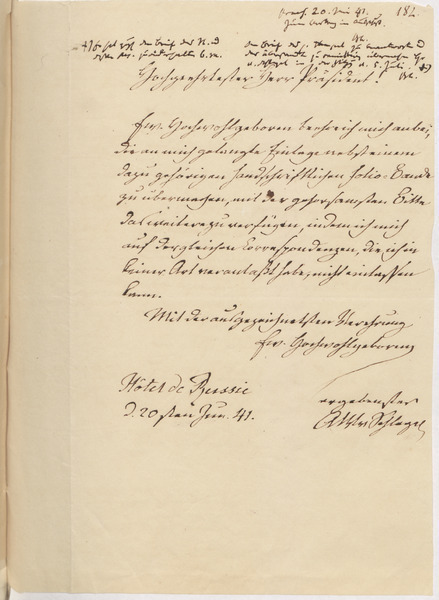 20. Juni 41.
184.
Hochgeehrtester Herr Präsident!
Ew. Hochwohlgeboren beehre ich mich anbei,
die an mich gelangte Einlage nebst einem
dazu gehörigen handschriftlichen Folio-Bande
zu übermachen, mit der gehorsamsten Bitte
das weitere zu verfügen, indem ich mich
auf dergleichen Correspondenzen, die ich in
keiner Art veranlaßt habe, nicht einlassen
kann.
Mit der ausgezeichnetsten Verehrung
Ew. Hochwohlgeboren
Hôtel de Russie
d. 20sten Jun. 41.
ergebenster
AWv Schlegel